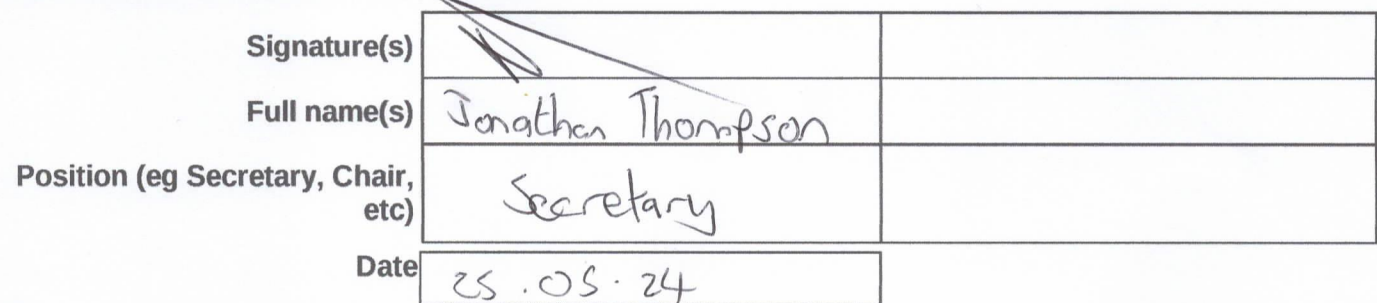 Signature(s)
Full name(s) Jonathan Thompson
Position (eg Secretary, Chair,
etc) Secretary
Date 25.05.24